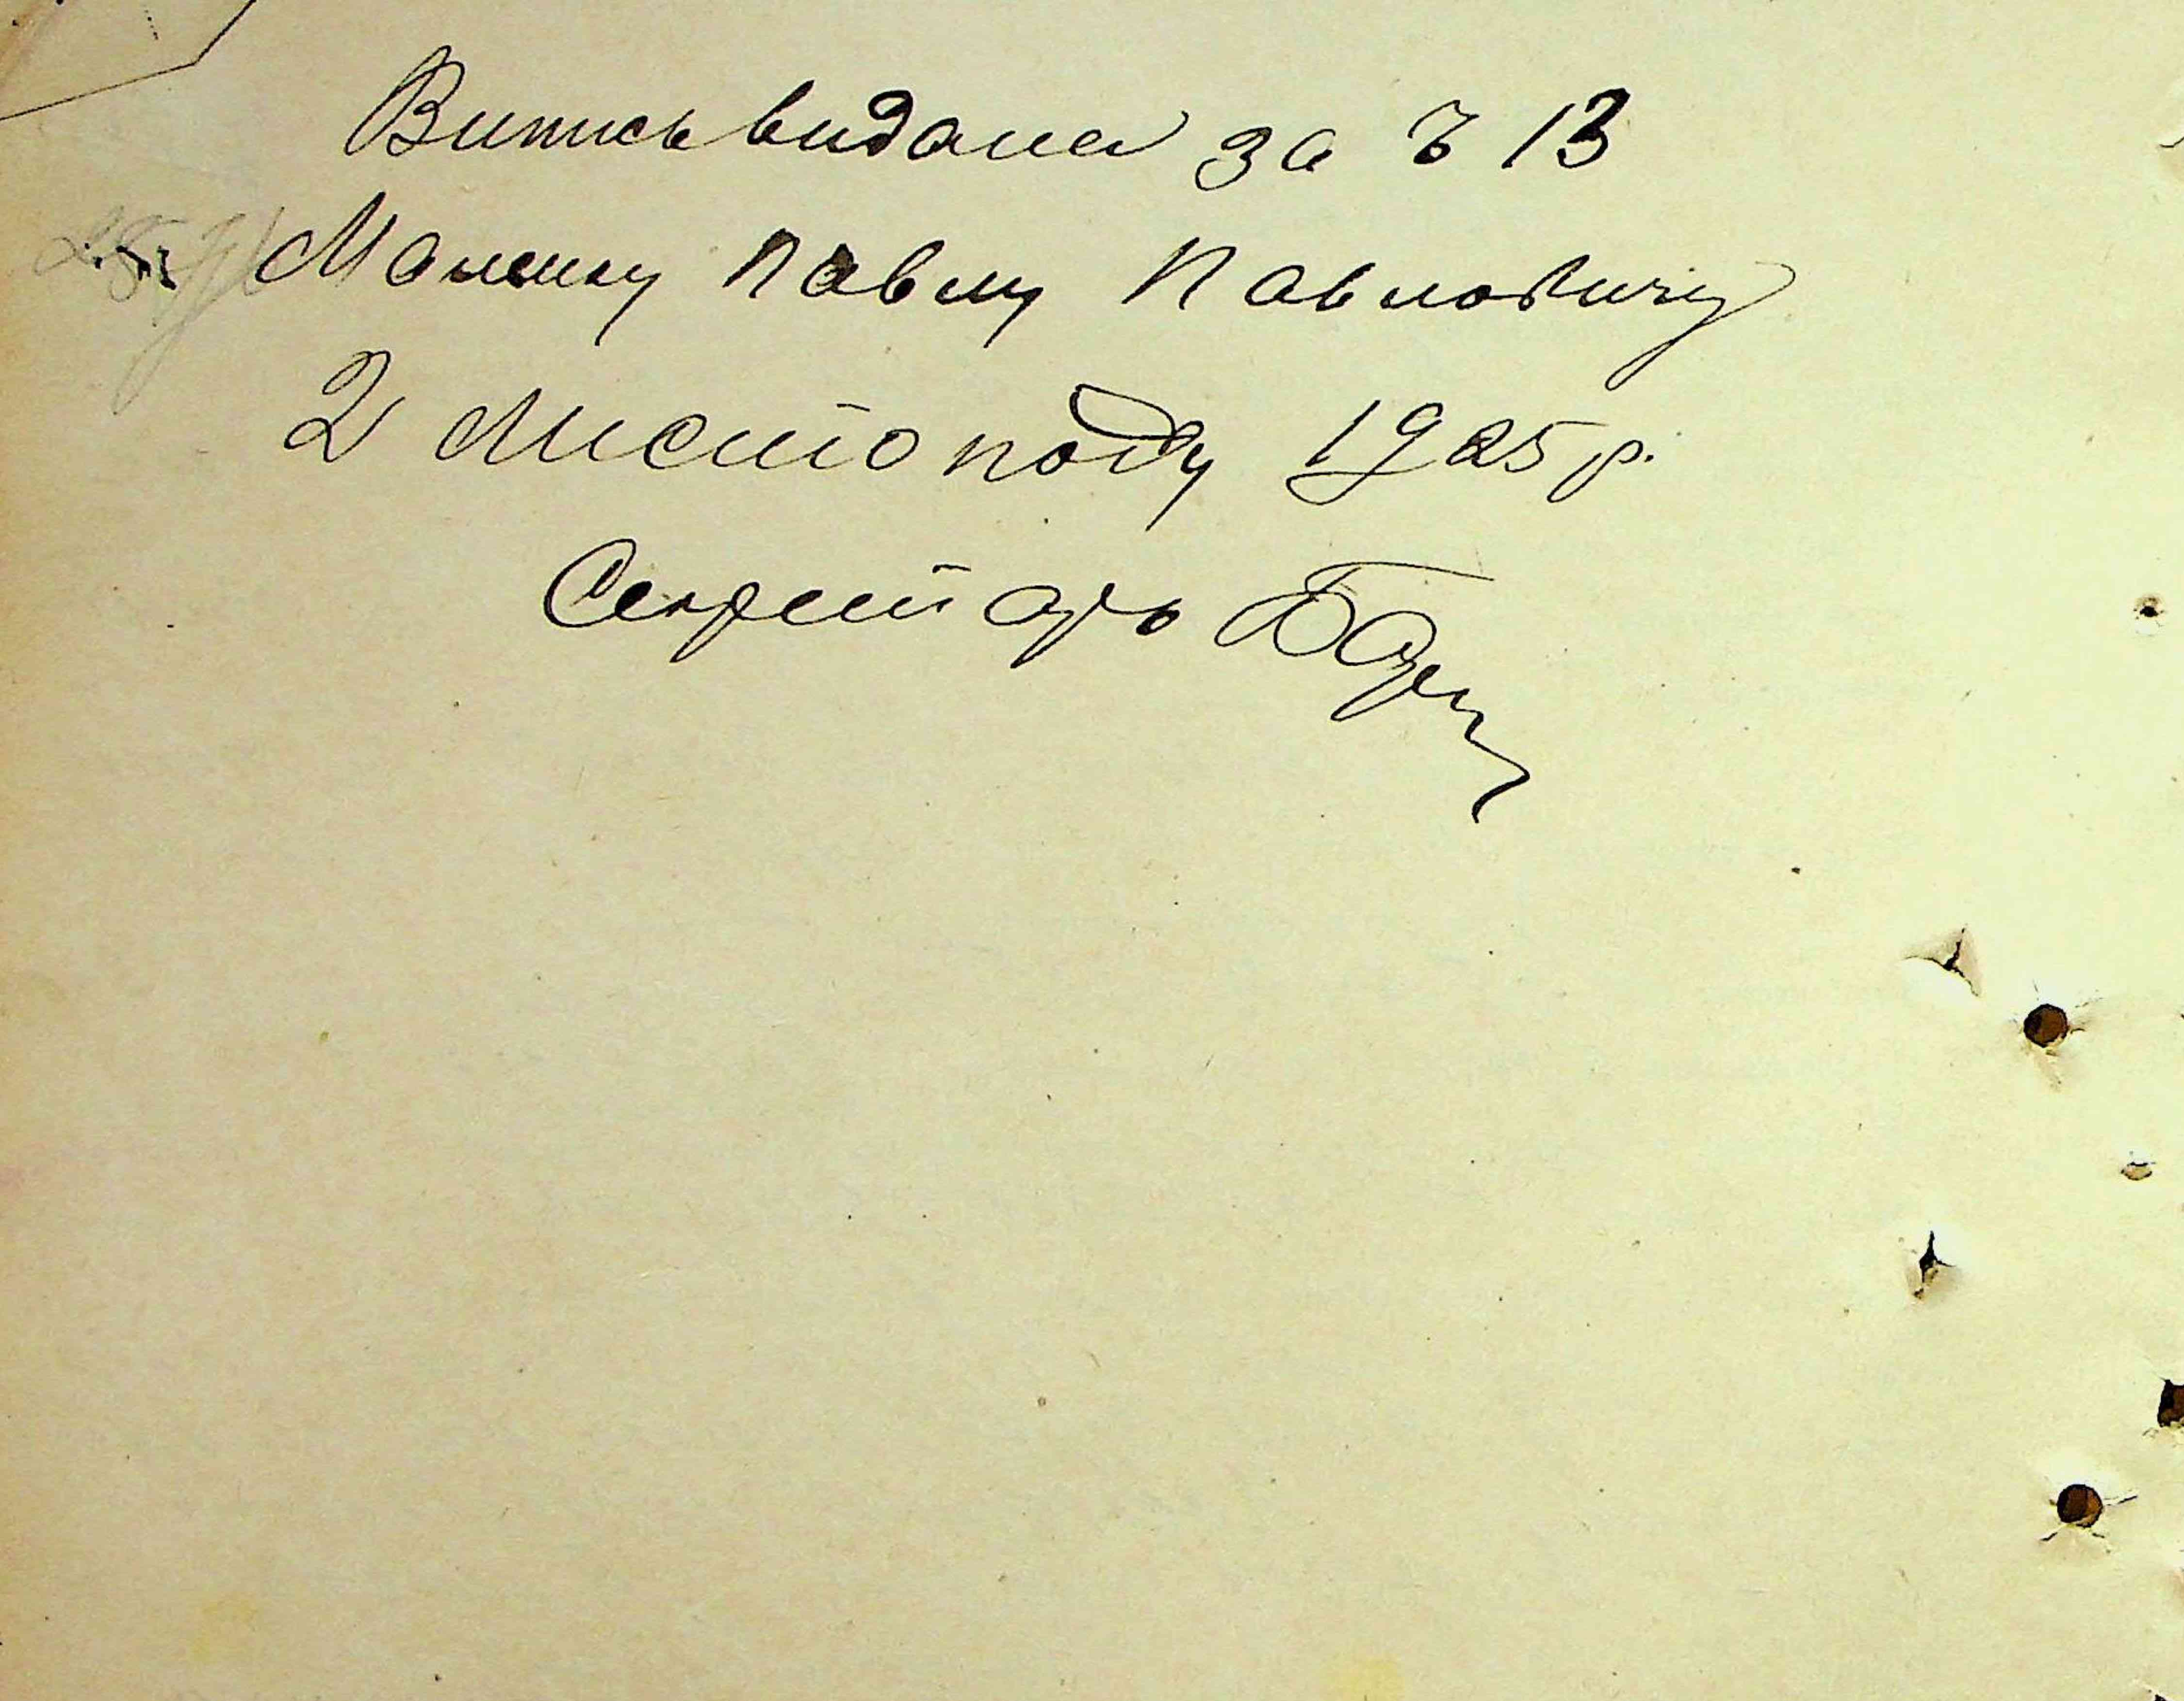 Випись видана за Ч 13
Павлу Павловичу
2 Листопаду 1925 р.
Секретарь